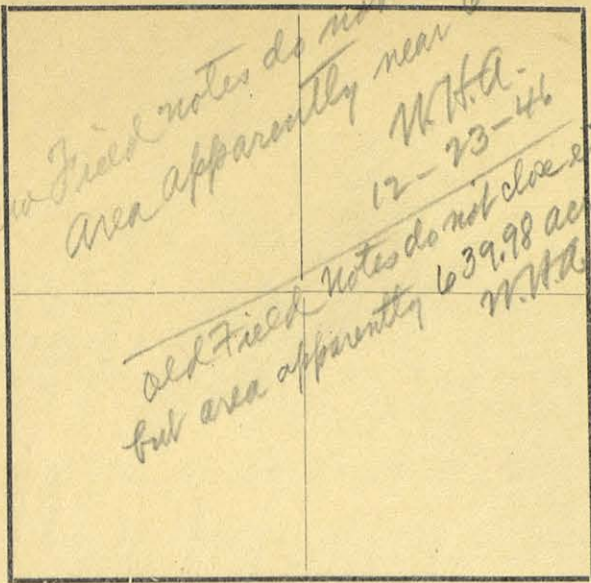 Field notes do not
area apparently near
W.H.A.
12-23-46
old Field notes do not close
but area apparently 639.98 ac
W.H.A.